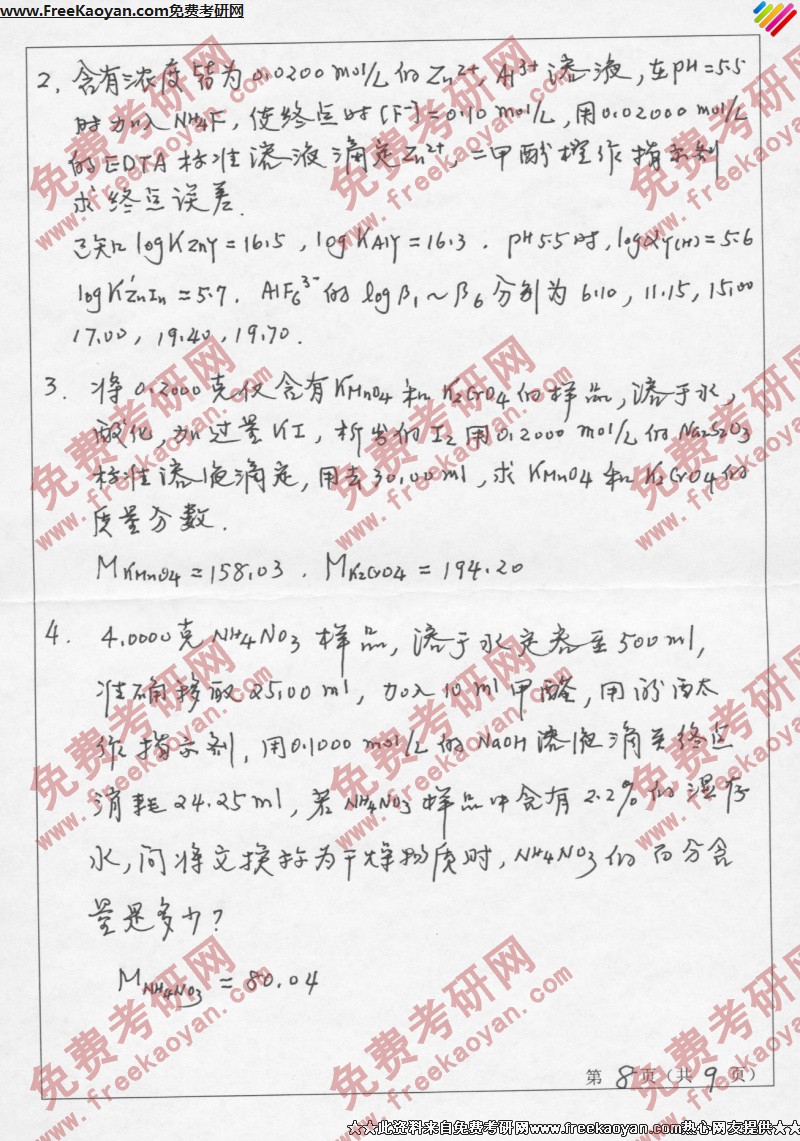 www.FreeKaoyan.com免费考研网
2. 含有浓度皆为0.0200 mol/L 的 Zn2+, Al3+ 溶液, 在 pH=5.5
时加入 NH4F, 使终点时 [F-]=0.10 mol/L, 用 0.02000 mol/L
的 EDTA 标准溶液滴定 Zn2+, 二甲酚橙作指示剂
求终点误差.
已知 log KZnY = 16.5, log KAlY = 16.3. pH 5.5 时, log αY(H) = 5.6
log K'ZnIn = 5.7. AlF6 3- 的 log β1 ~ β6 分别为 6.10, 11.15, 15.00
17.00, 19.40, 19.70.
3. 将 0.2000 克仅含有 KMnO4 和 K2CrO4 的样品, 溶于水,
酸化, 加过量 KI, 析出的 I2 用 0.2000 mol/L 的 Na2S2O3
标准溶液滴定, 用去 30.00 ml, 求 KMnO4 和 K2CrO4 的
质量分数.
MKMnO4 = 158.03. MK2CrO4 = 194.20
4. 4.0000 克 NH4NO3 样品, 溶于水定容至 500 ml,
准确移取 25.00 ml, 加入 10 ml 甲醛, 用酚酞
作指示剂, 用 0.1000 mol/L 的 NaOH 溶液滴至终点
消耗 24.25 ml, 若 NH4NO3 样品中含有 2.2% 的湿存
水, 问将交换称为干燥物质时, NH4NO3 的百分含
量是多少?
MNH4NO3 = 80.04
第 8 页 (共 9 页)
★☆此资料来自免费考研网www.freekaoyan.com热心网友提供★☆★
免费考研网
www.freekaoyan.com